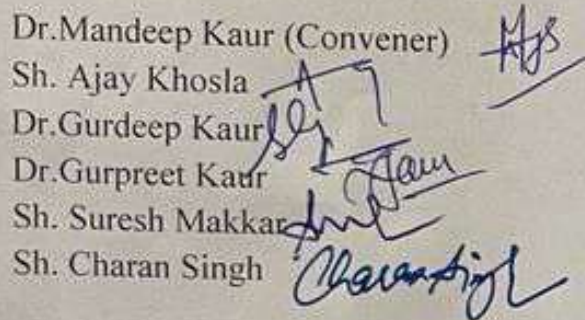 Dr.Mandeep Kaur (Convener)
Sh. Ajay Khosla
Dr.Gurdeep Kaur
Dr.Gurpreet Kaur
Sh. Suresh Makkar
Sh. Charan Singh Charan Singh